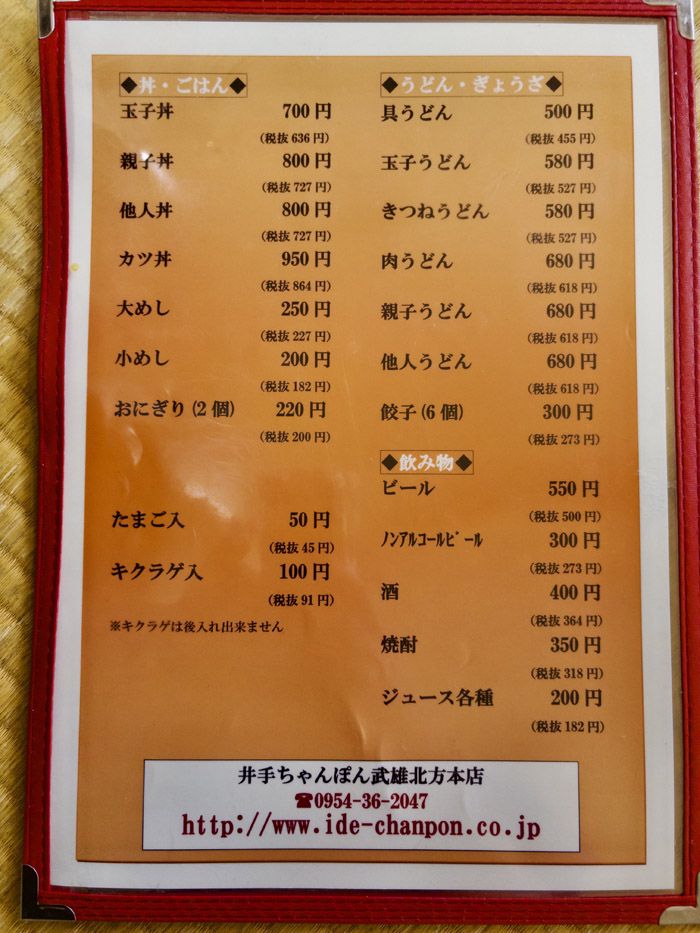 ◆丼・ごはん◆
玉子丼 700円
(税抜636円)
親子丼 800円
(税抜727円)
他人丼 800円
(税抜727円)
カツ丼 950円
(税抜864円)
大めし 250円
(税抜227円)
小めし 200円
(税抜182円)
おにぎり(2個) 220円
(税抜200円)
たまご入 50円
(税抜45円)
キクラゲ入 100円
(税抜91円)
※キクラゲは後入れ出来ません
◆うどん・ぎょうざ◆
具うどん 500円
(税抜455円)
玉子うどん 580円
(税抜527円)
きつねうどん 580円
(税抜527円)
肉うどん 680円
(税抜618円)
親子うどん 680円
(税抜618円)
他人うどん 680円
(税抜618円)
餃子(6個) 300円
(税抜273円)
◆飲み物◆
ビール 550円
(税抜500円)
ﾉﾝｱﾙｺｰﾙﾋﾞｰﾙ 300円
(税抜273円)
酒 400円
(税抜364円)
焼酎 350円
(税抜318円)
ジュース各種 200円
(税抜182円)
井手ちゃんぽん武雄北方本店
☎0954-36-2047
http://www.ide-chanpon.co.jp